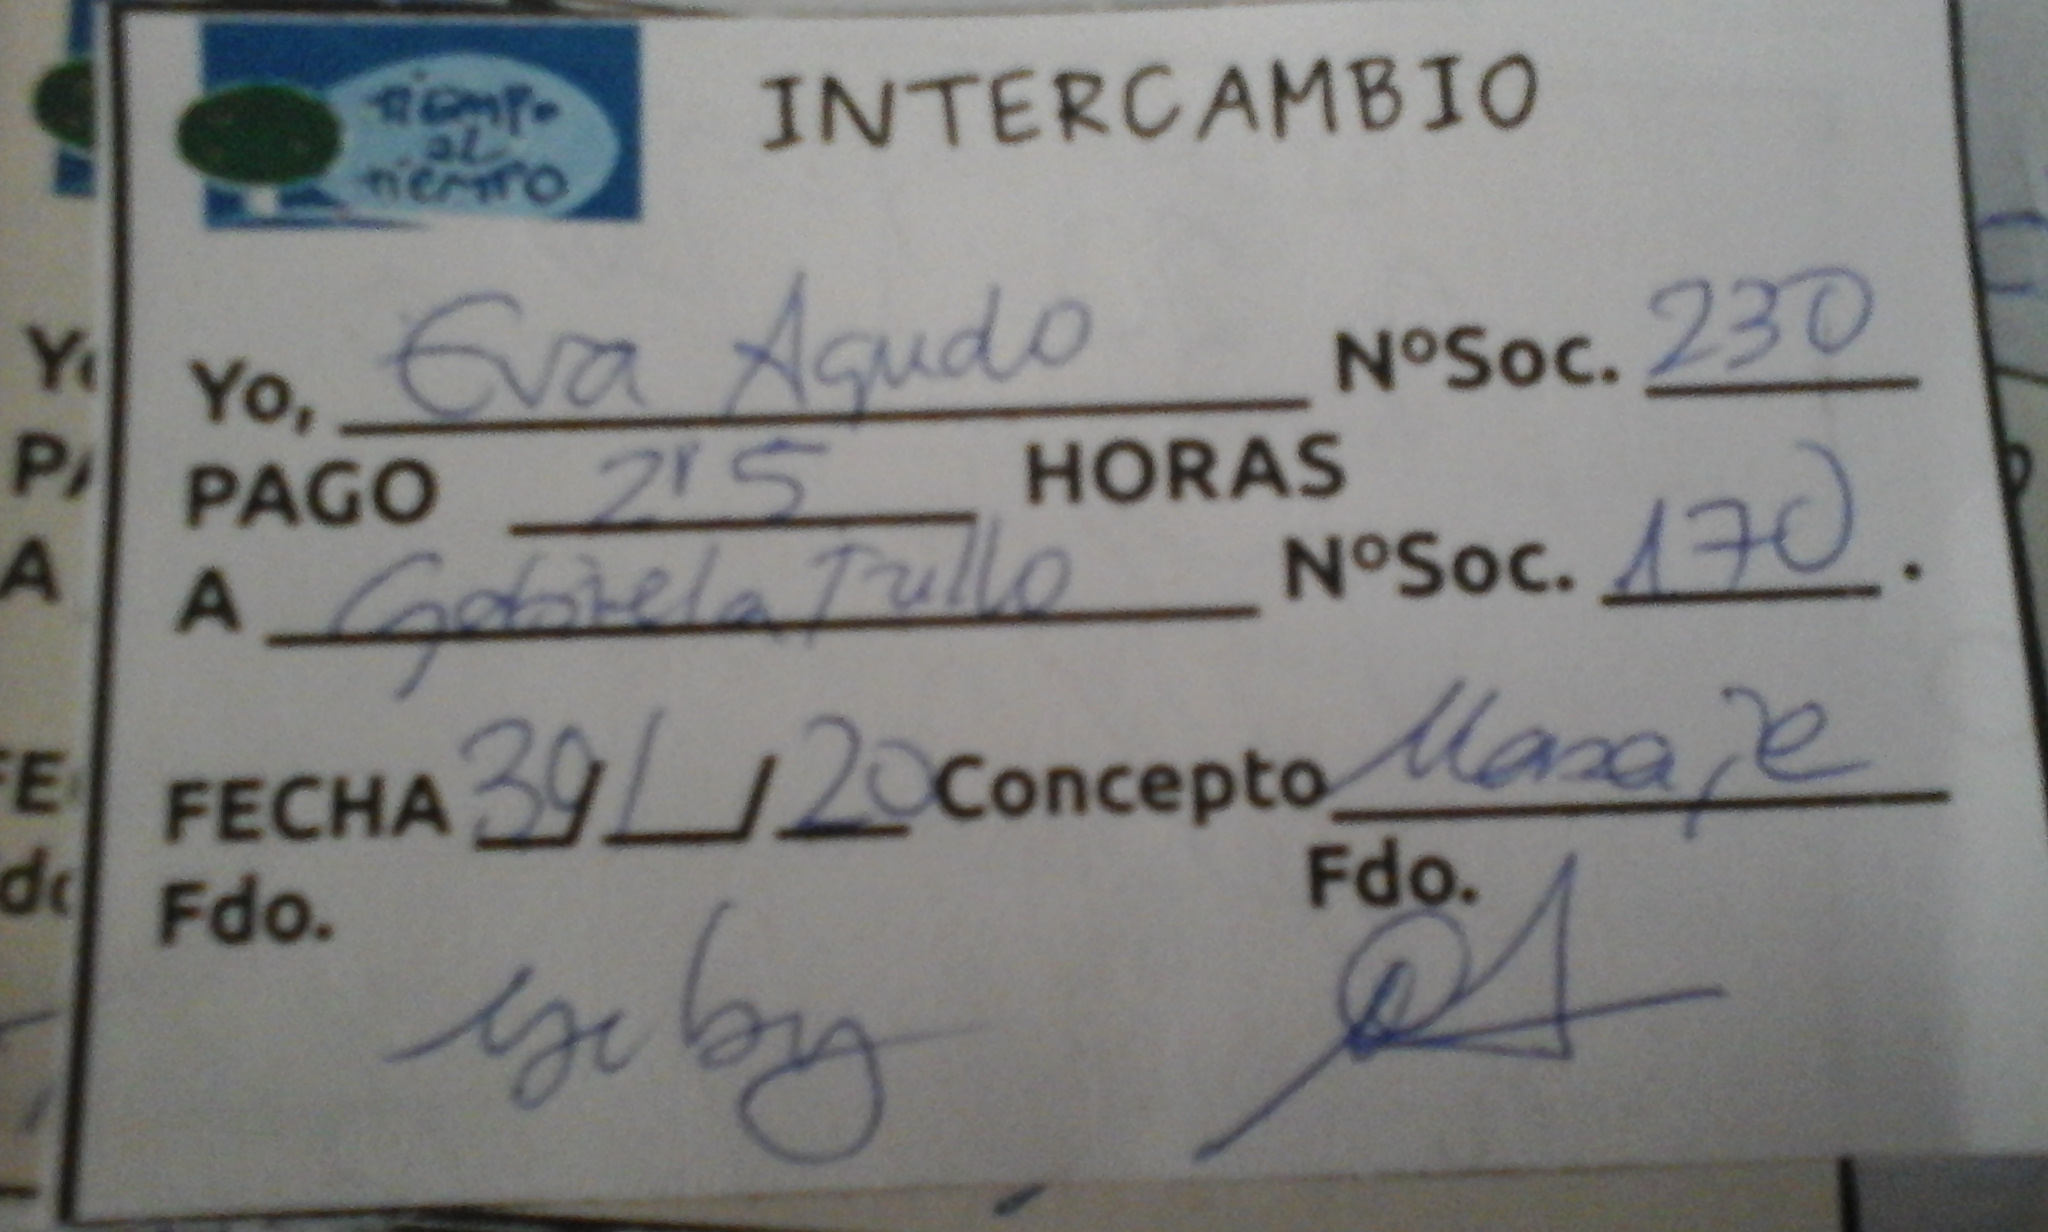 tiempo
al
tiempo
INTERCAMBIO
Yo, Eva Agudo NºSoc. 230
PAGO 2'5 HORAS
A Gabriela Tullo NºSoc. 170.
FECHA 30/1/20 Concepto Masaje
Fdo. Fdo.
Gaby